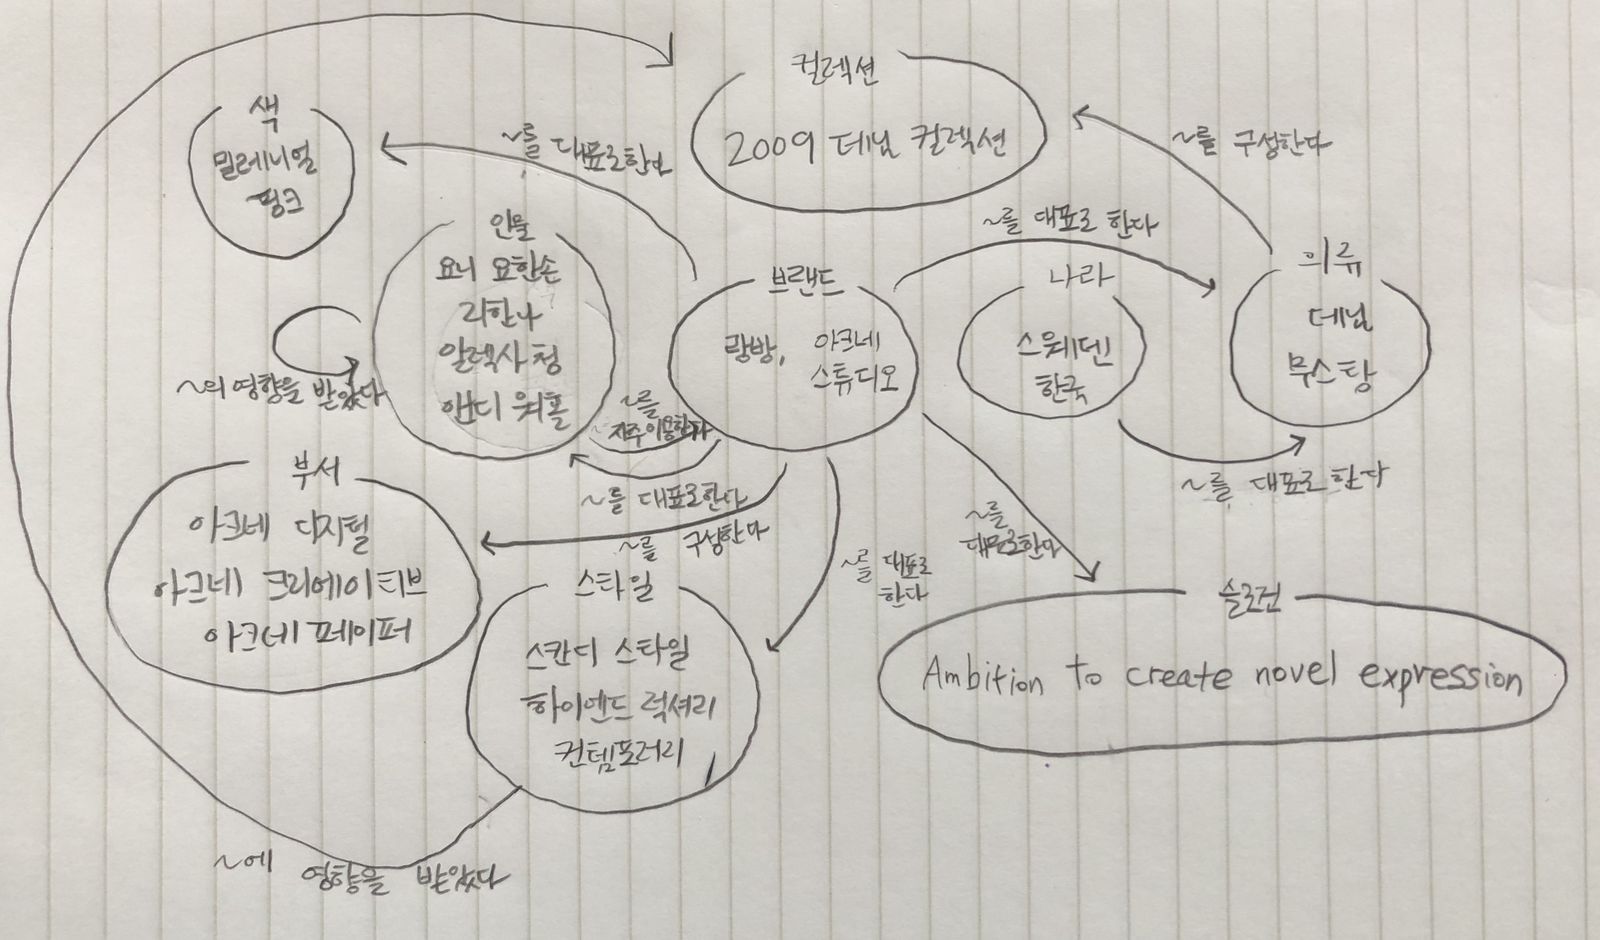 컬렉션
2009 데님 컬렉션
색
밀레니얼
핑크
~를 대표로한다
~를 구성한다
인물
요니 요한손
리한나
알렉사 청
앤디 워홀
~의 영향을 받았다
브랜드
랑방, 아크네
스튜디오
~를 대표로 한다
나라
스웨덴
한국
의류
데님
무스탕
~를
자주이용한다
~를 대표로한다
~를 대표로 한다
부서
아크네 디지털
아크네 크리에이티브
아크네 페이퍼
~를 구성한다
~를
대표로한다
~를 대표로
한다
스타일
스칸디 스타일
하이엔드 럭셔리
컨템포러리
슬로건
Ambition to create novel expression
~에 영향을 받았다